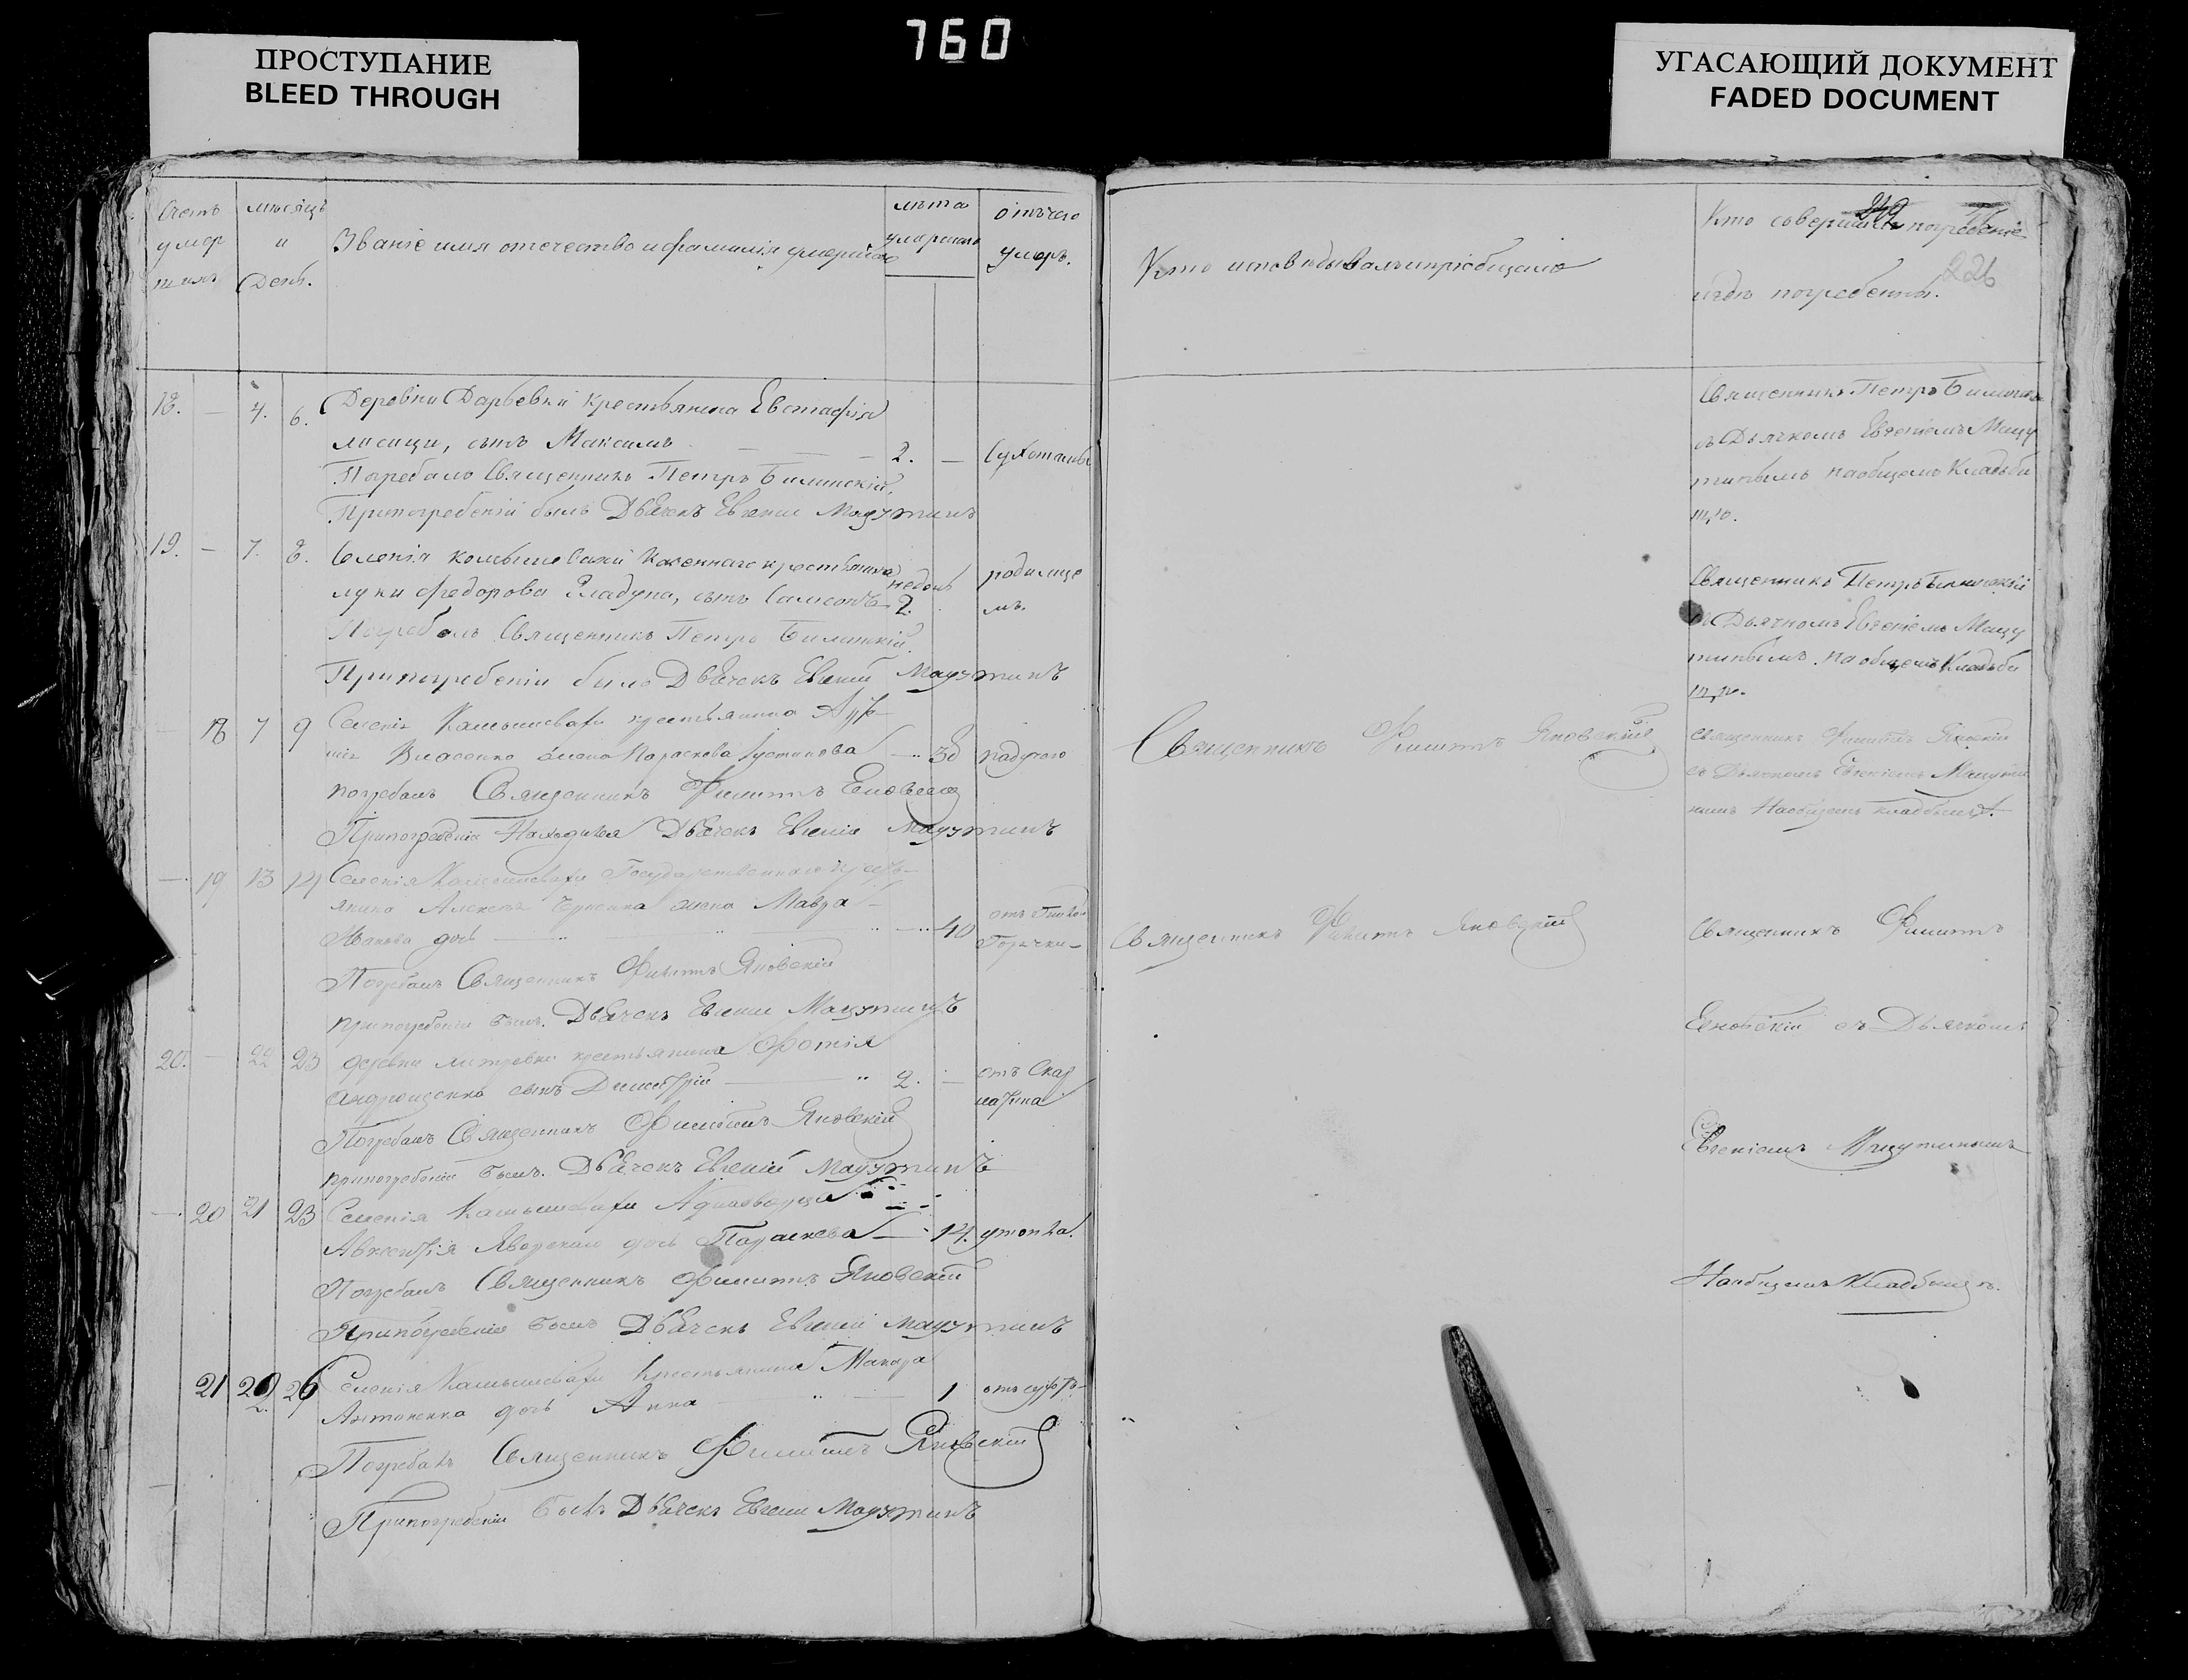 760
ПРОСТУПАНИЕ
BLEED THROUGH
УГАСАЮЩИЙ ДОКУМЕНТ
FADED DOCUMENT
Счетъ умершихъ
мѣсяцъ и День.
Званіе имя отечество и фамилія умершаго
лѣта умершаго
отъ чего умеръ.
18. — 4. 6. Деревни Дарьевки крестьянина Евстафія
лисици, сынъ Максимъ — — — 2. — Сухотаны
Погребалъ Священникъ Петръ Билинскій.
Припогребеніи былъ Дьячекъ Евгеніи Мацутинъ
19. — 7. 8. Селенія Камышевахи Казеннаго крестьянина недель родимце
луки Федорова Гладуна, сынъ Самсонъ 2. мъ.
Погребалъ Священникъ Петръ Билинскій.
Припогребеніи былъ Дьячекъ Евгеній Мацутинъ
— 18 7 9 Селенія Камышевахи крестьянина
Власенко жена Параскева Іустинова — 30 падучого
погребалъ Священникъ Филиппъ Еновскій
Припогребеніи Находился Дьячекъ Евгеніи Мацутинъ
— 19 13 14 Селенія Камышевахи Государственнаго крестьянина Алексея жена Мавра
Иванова дочь — 40 отъ Горячки
Погребалъ Священникъ Филиппъ Яновскій
припогребеніи былъ. Дьячекъ Евгеніи Мацутинъ
20. — 22 23 деревни крестьянина Фотія
Андрющенко сынъ Димитрій — 2. — отъ Скарлатина
Погребалъ Священникъ Филиппъ Яновскій
припогребеніи былъ. Дьячекъ Евгеній Мацутинъ
— 20 21 23 Селенія Камышевахи
Авксентія дочь Параскева — 14. утопла.
Погребалъ Священникъ Филиппъ Яновскій
Припогребеніи былъ Дьячекъ Евгеній Мацутинъ
21 22 26 Селенія Камышевахи крестьянина Макара
Антоненка дочь Анна — 1
Погребалъ Священникъ Филиппъ Яновскій
Припогребеніи былъ Дьячекъ Евгеніи Мацутинъ
Кто исповѣдывалъ и пріобщалъ
Кто совершилъ погребеніе
и гдѣ погребены.
226
Священникъ Петръ Билинскій
съ Дьячкомъ Евгеніемъ Мацу
тинымъ на общемъ Кладьби
щѣ.
Священникъ Петръ Билинскій
съ Дьячкомъ Евгеніемъ Мацу
тинымъ. на общемъ Кладьби
щѣ.
Священникъ Филиппъ Яновскій
Священникъ Филиппъ Яновскій
съ Дьячкомъ Евгеніемъ Мацути
нымъ На общемъ кладбищѣ.
Священникъ Филиппъ Яновскій
Священникъ Филиппъ
Еновскій съ Дьячкомъ
Евгеніемъ Мацутинымъ
На общемъ Кладбищѣ.